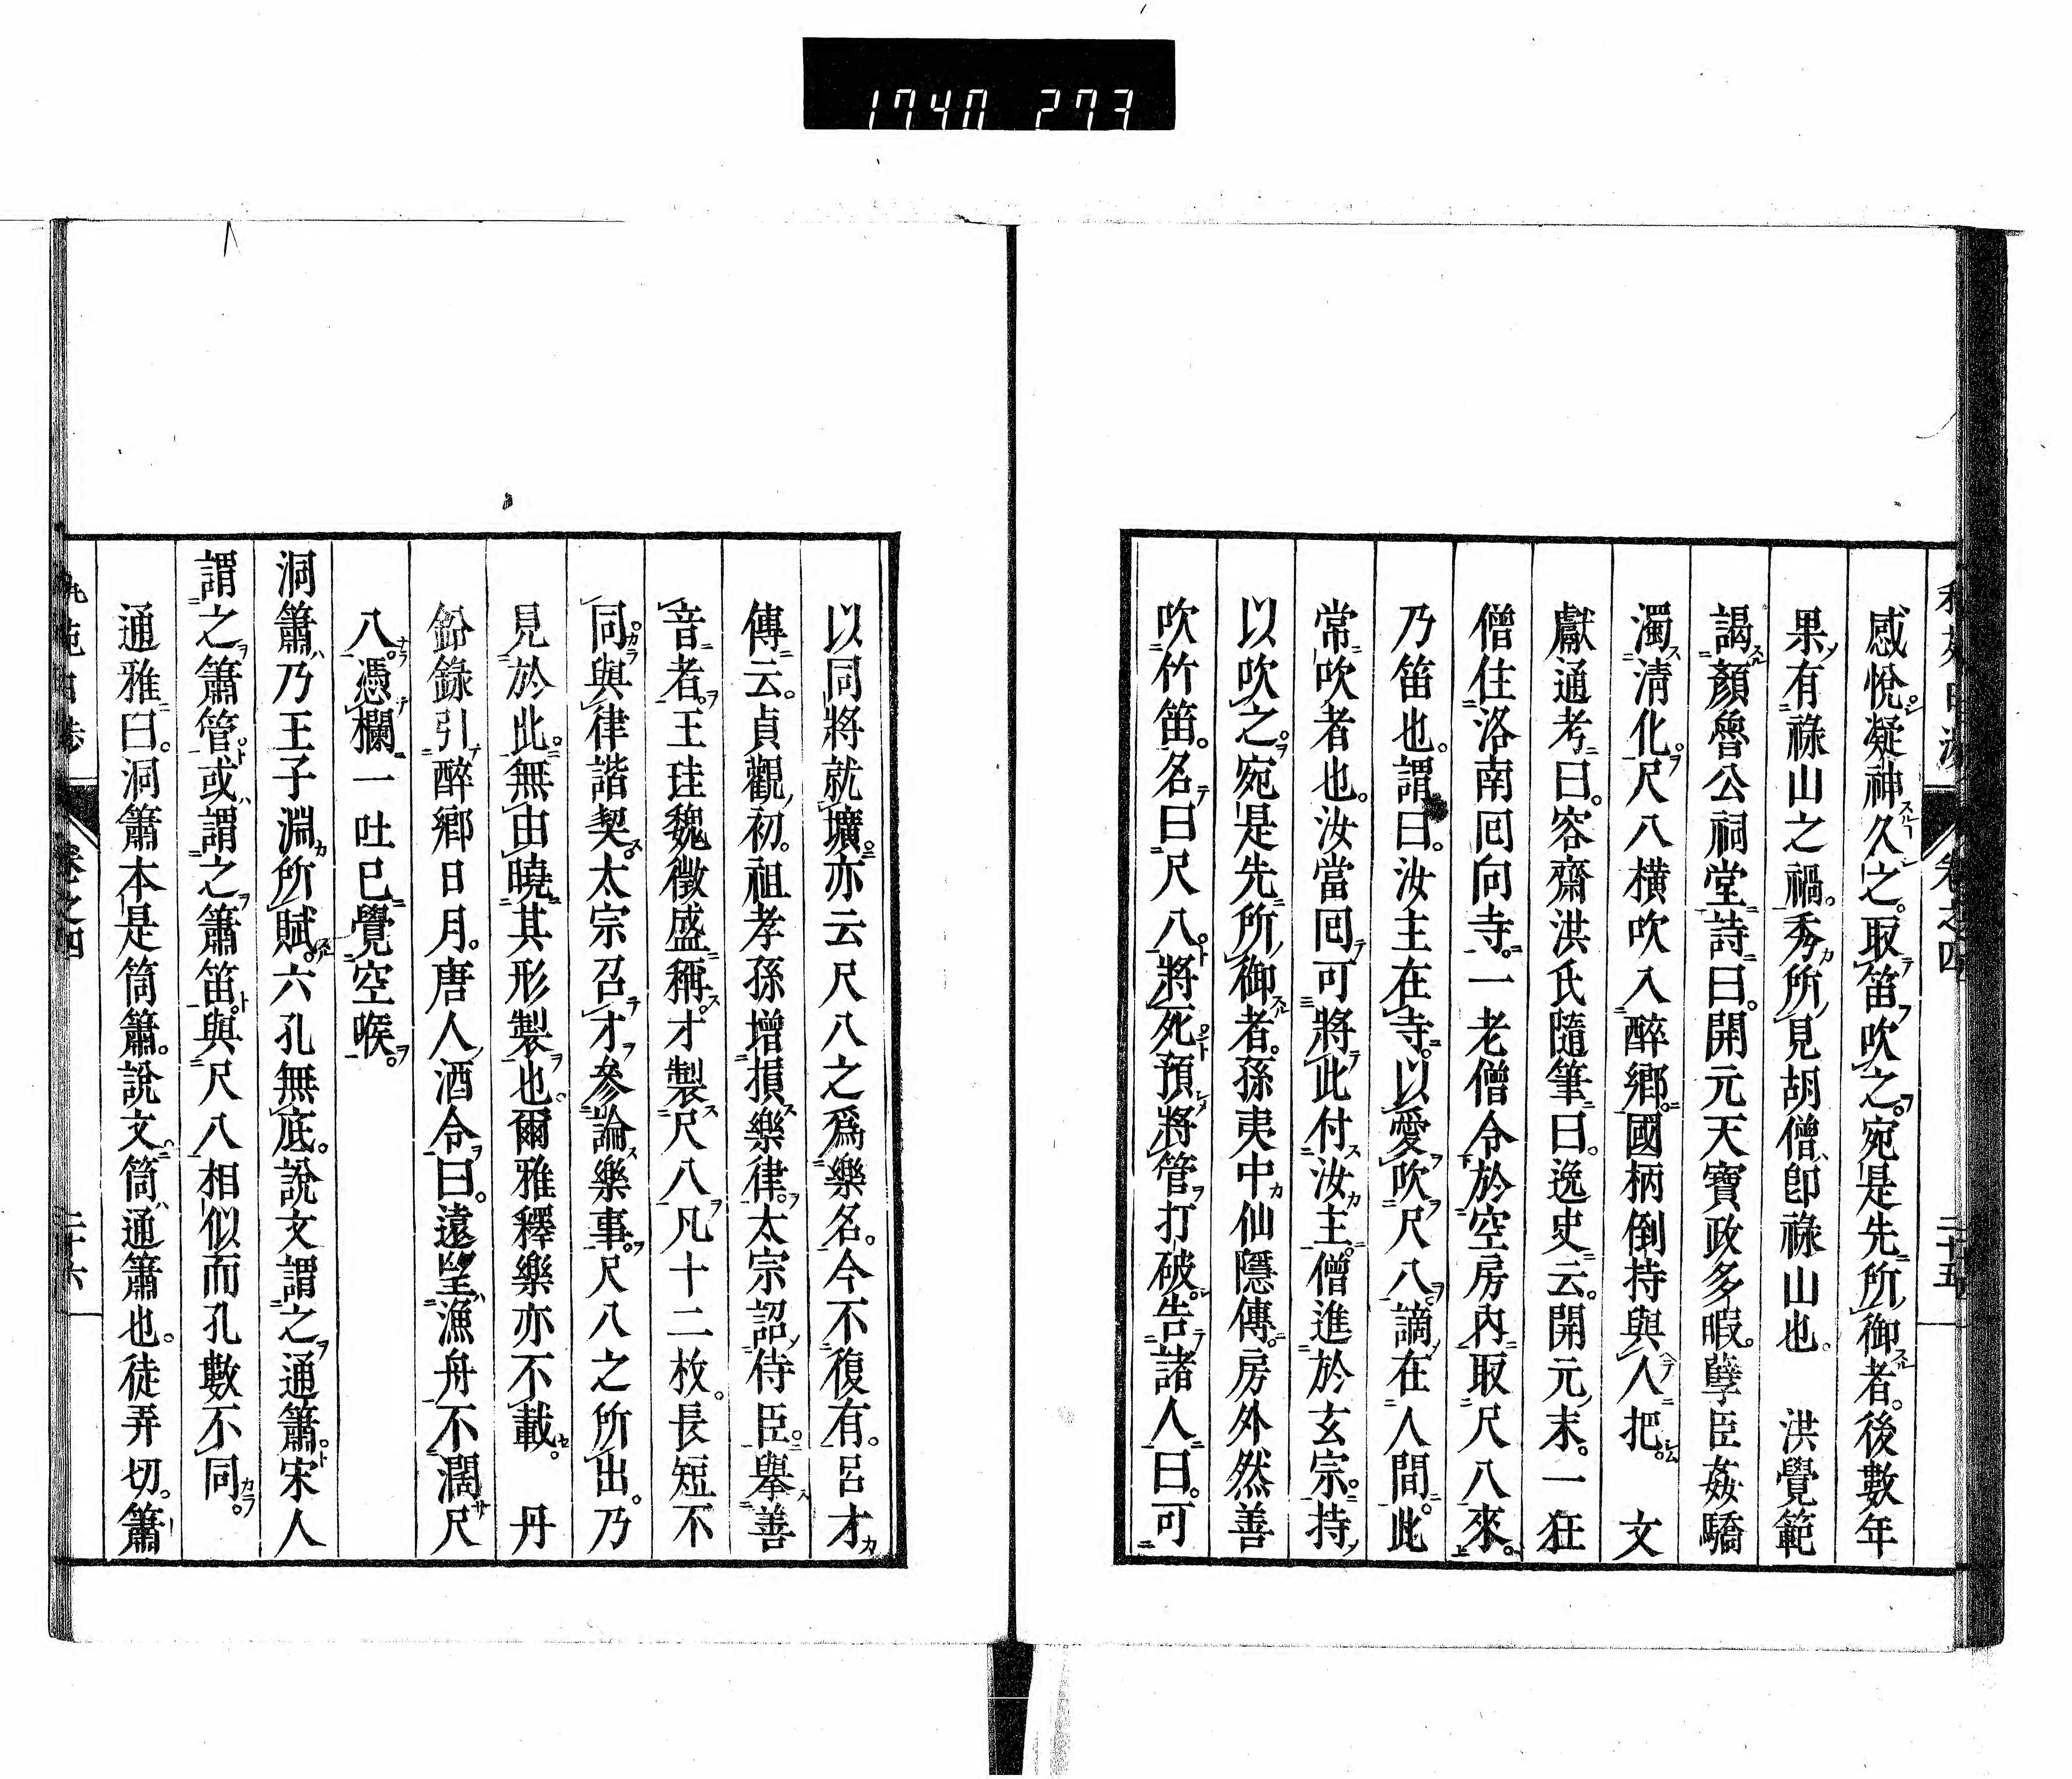 1740 273
卷之四
二十五
感悅凝神久之。取笛吹之。宛是先所御者。後數年
果有祿山之禍。秀所見胡僧卽祿山也。　洪覺範
謁顏魯公祠堂詩曰。開元天寶政多暇。孽臣姦驕
濁清化。尺八橫吹入醉鄉。國柄倒持與人把。　文
獻通考曰。容齋洪氏隨筆曰。逸史云。開元末。一狂
僧住洛南囘向寺。一老僧令於空房內取尺八來。
乃笛也。謂曰。汝主在寺。以愛吹尺八。謫在人間。此
常吹者也。汝當囘可將此付汝主。僧進於玄宗。持
以吹之。宛是先所御者。孫夷中仙隱傳。房外然善
吹竹笛。名曰尺八。將死預將管打破。告諸人曰。可
以同將就壙。亦云尺八之爲樂名。今不復有。呂才
傳云。貞觀初。祖孝孫增損樂律。太宗詔侍臣。擧善
音者。王珪魏徵盛稱。才製尺八。凡十二枚。長短不
同。與律諧契。太宗召才參論樂事。尺八之所出。乃
見於此。無由曉其形製也。爾雅釋樂亦不載。　丹
鉛錄引醉鄉日月。唐人酒令曰。遠望漁舟不濶尺
八。憑欄一吐已覺空喉。
洞簫乃王子淵所賦。六孔無底。說文謂之通簫。宋人
謂之簫管。或謂之簫笛。與尺八相似而孔數不同。
通雅曰。洞簫本是筒簫。說文。筒通簫也。徒弄切。簫
卷之四
二十六